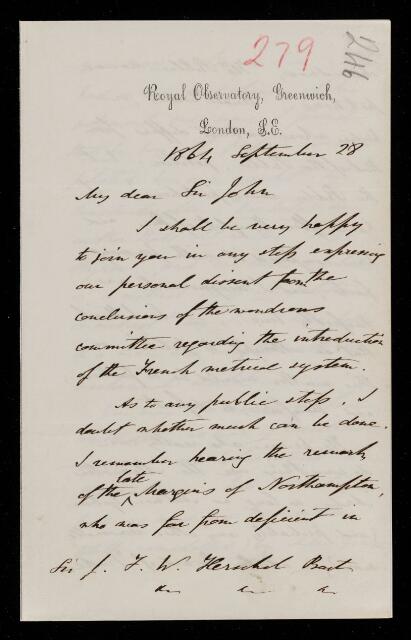 279
2146
Royal Observatory, Greenwich,
London, S.E.
1864 September 28
My dear Sir John
I shall be very happy
to join you in any steps expressing
our personal dissent from the
conclusions of the wondrous
committee regarding the introduction
of the French metrical system.
As to any public steps, I
doubt whether much can be done.
I remember hearing the remark
late
of the ^ Marquis of Northampton,
who was far from deficient in
Sir J. F. W. Herschel Bart